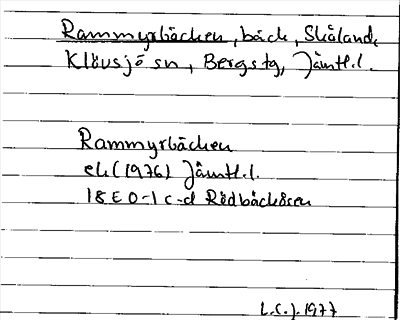 Rammyrbäcken, bäck, Skåland,
Klövsjö sn, Bergs tg, Jämtl.l.
Rammyrbäcken
ek (1976) Jämtl.l.
18E 0-1 c-d Rödbäcksåsen
L.C.J. 1977